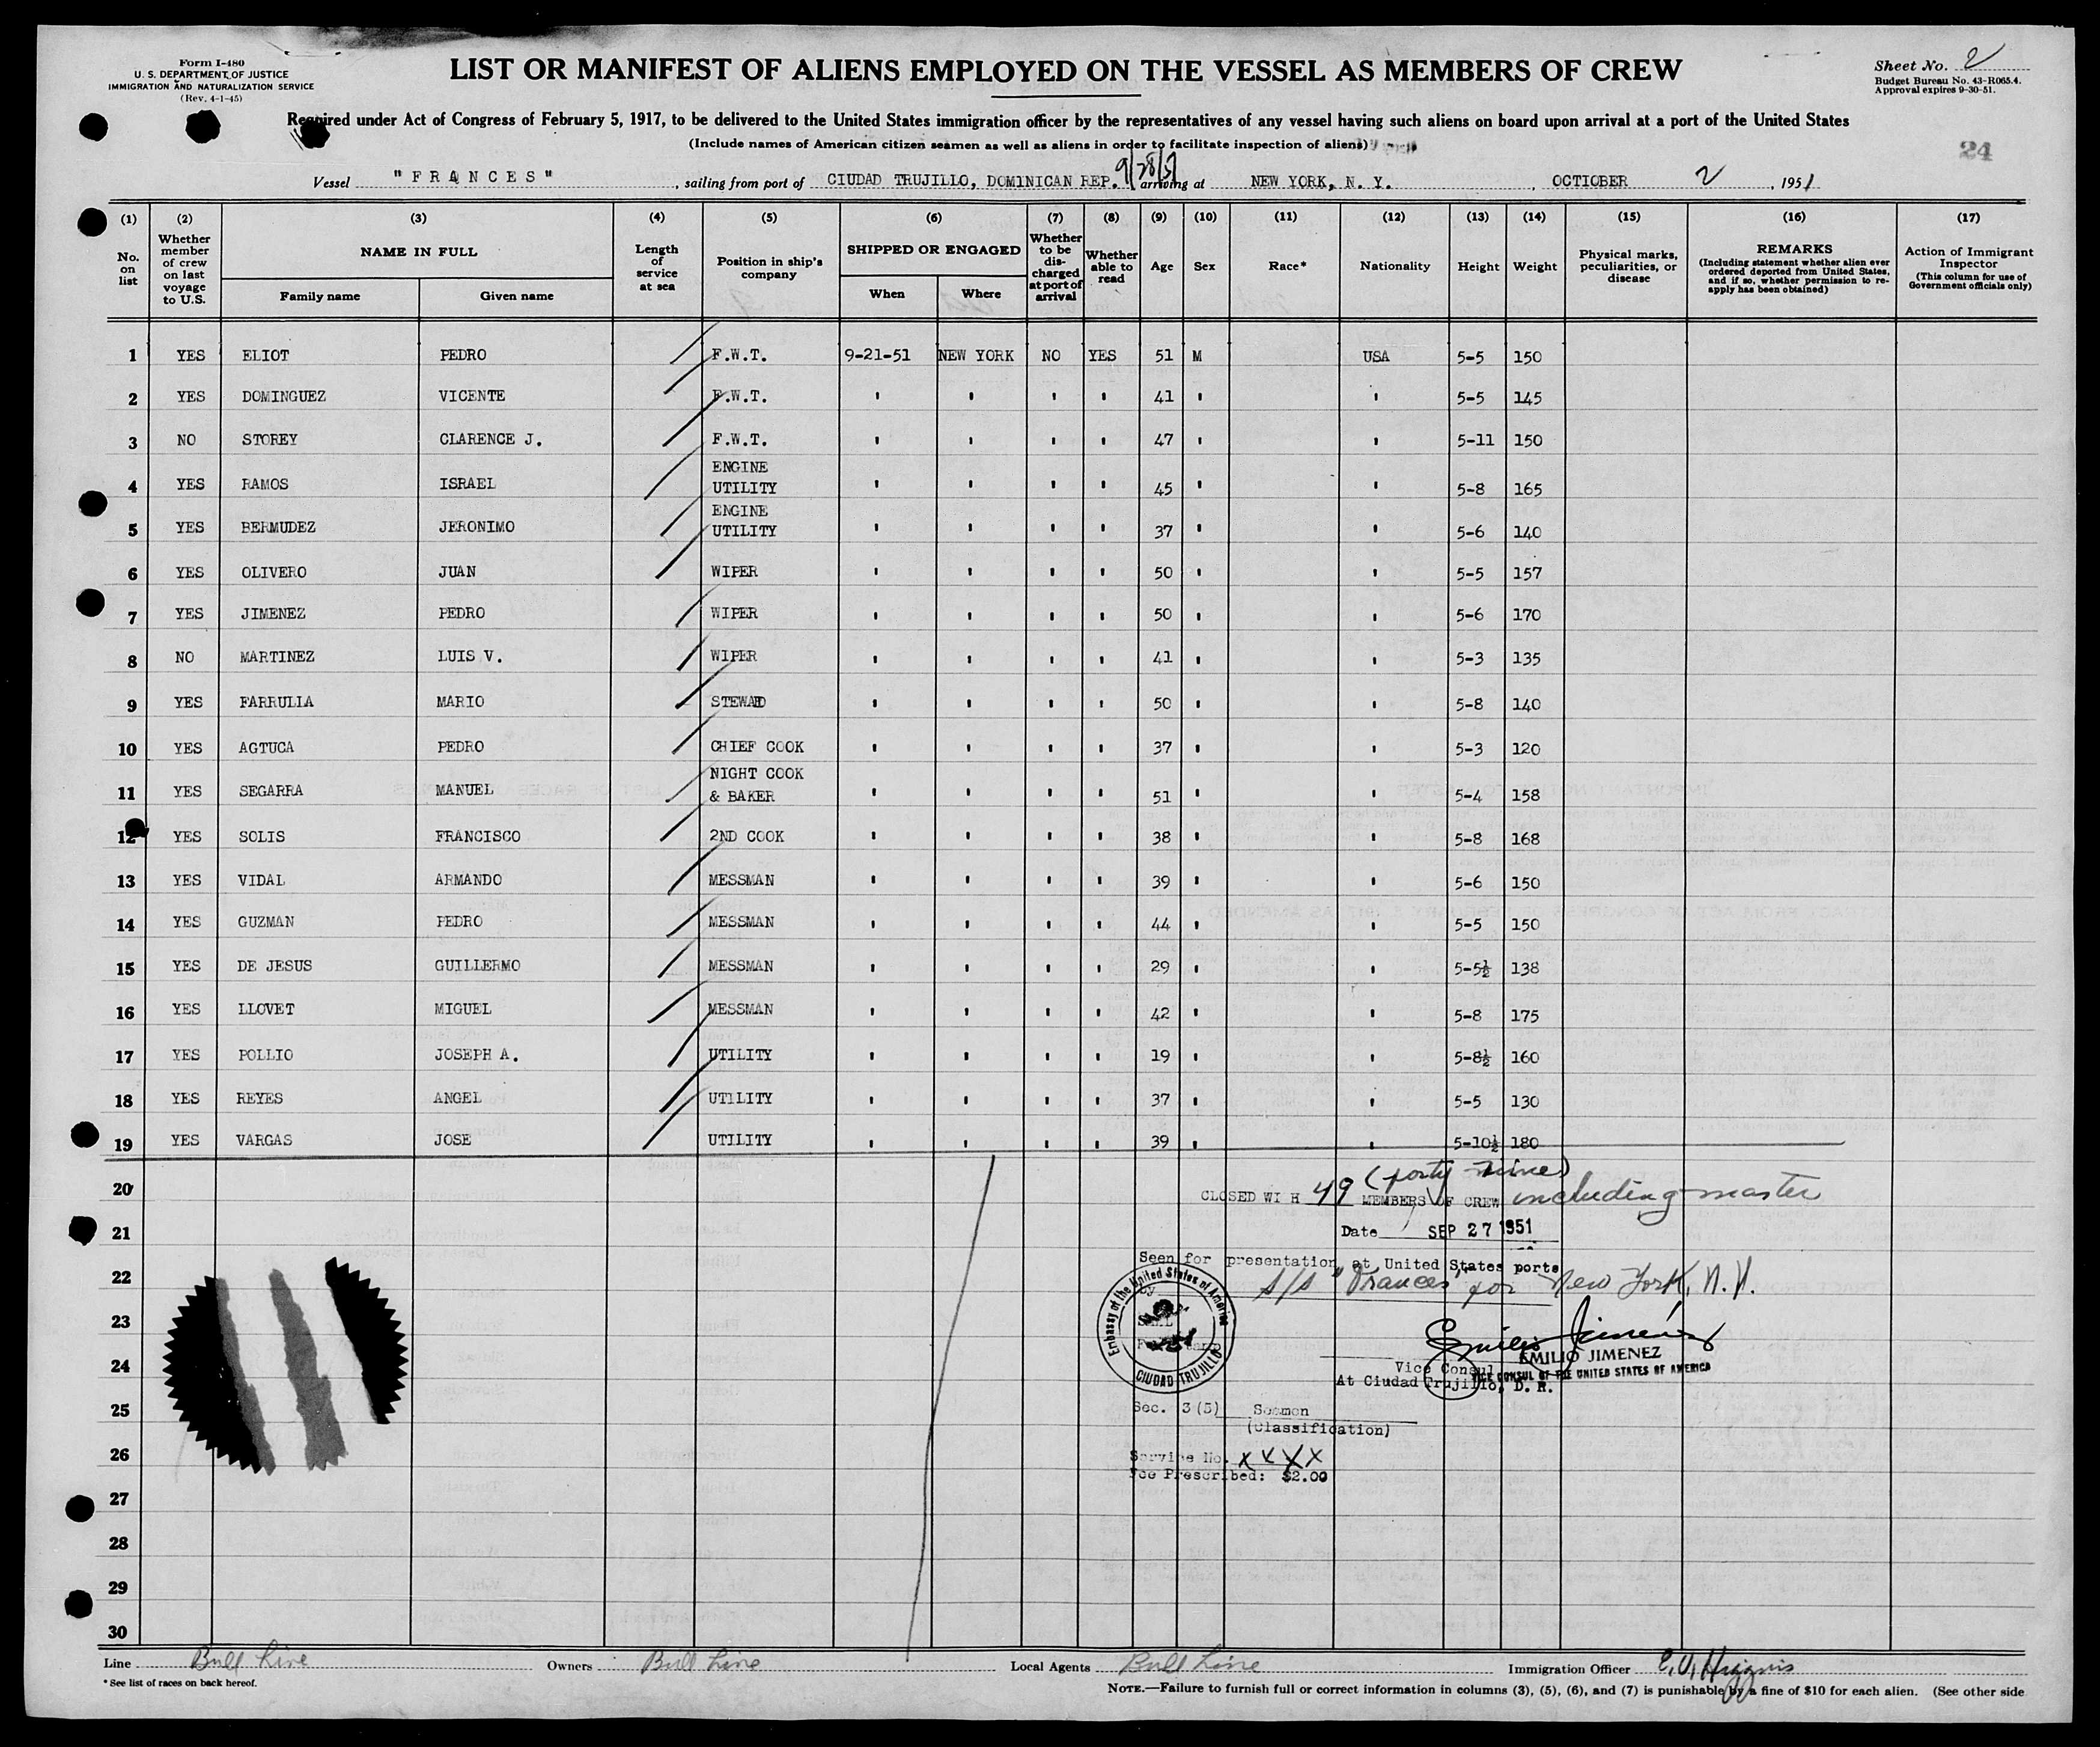 Form I-480
U. S. DEPARTMENT OF JUSTICE
IMMIGRATION AND NATURALIZATION SERVICE
(Rev. 4-1-45)
LIST OR MANIFEST OF ALIENS EMPLOYED ON THE VESSEL AS MEMBERS OF CREW
Sheet No. 2
Budget Bureau No. 43-R065.4.
Approval expires 9-30-51.
Required under Act of Congress of February 5, 1917, to be delivered to the United States immigration officer by the representatives of any vessel having such aliens on board upon arrival at a port of the United States
(Include names of American citizen seamen as well as aliens in order to facilitate inspection of aliens)
24
9/28/51
Vessel "FRANCES", sailing from port of CIUDAD TRUJILLO, DOMINICAN REP. arriving at NEW YORK, N. Y., OCTIOBER 2, 1951
(1) (2) (3) (4) (5) (6) (7) (8) (9) (10) (11) (12) (13) (14) (15) (16) (17)
No. on list
Whether member of crew on last voyage to U.S.
NAME IN FULL
Family name
Given name
Length of service at sea
Position in ship's company
SHIPPED OR ENGAGED
When
Where
Whether to be discharged at port of arrival
Whether able to read
Age
Sex
Race*
Nationality
Height
Weight
Physical marks, peculiarities, or disease
REMARKS
(Including statement whether alien ever ordered deported from United States, and if so, whether permission to reapply has been obtained)
Action of Immigrant Inspector
(This column for use of Government officials only)
1 YES ELIOT PEDRO F.W.T. 9-21-51 NEW YORK NO YES 51 M USA 5-5 150
2 YES DOMINGUEZ VICENTE F.W.T. ' ' ' ' 41 ' ' 5-5 145
3 NO STOREY CLARENCE J. F.W.T. ' ' ' ' 47 ' ' 5-11 150
4 YES RAMOS ISRAEL ENGINE UTILITY ' ' ' ' 45 ' ' 5-8 165
5 YES BERMUDEZ JERONIMO ENGINE UTILITY ' ' ' ' 37 ' ' 5-6 140
6 YES OLIVERO JUAN WIPER ' ' ' ' 50 ' ' 5-5 157
7 YES JIMENEZ PEDRO WIPER ' ' ' ' 50 ' ' 5-6 170
8 NO MARTINEZ LUIS V. WIPER ' ' ' ' 41 ' ' 5-3 135
9 YES FARRULLA MARIO STEWAD ' ' ' ' 50 ' ' 5-8 140
10 YES AGTUCA PEDRO CHIEF COOK ' ' ' ' 37 ' ' 5-3 120
11 YES SEGARRA MANUEL NIGHT COOK & BAKER ' ' ' ' 51 ' ' 5-4 158
12 YES SOLIS FRANCISCO 2ND COOK ' ' ' ' 38 ' ' 5-8 168
13 YES VIDAL ARMANDO MESSMAN ' ' ' ' 39 ' ' 5-6 150
14 YES GUZMAN PEDRO MESSMAN ' ' ' ' 44 ' ' 5-5 150
15 YES DE JESUS GUILLERMO MESSMAN ' ' ' ' 29 ' ' 5-5½ 138
16 YES LLOVET MIGUEL MESSMAN ' ' ' ' 42 ' ' 5-8 175
17 YES POLLIO JOSEPH A. UTILITY ' ' ' ' 19 ' ' 5-8½ 160
18 YES REYES ANGEL UTILITY ' ' ' ' 37 ' ' 5-5 130
19 YES VARGAS JOSE UTILITY ' ' ' ' 39 ' ' 5-10½ 180
20
21
22
23
24
25
26
27
28
29
30
(forty nine)
CLOSED WI H 49 MEMBERS OF CREW including master
Date SEP 27 1951
Seen for presentation at United States ports
by s/s "Frances" for New York, N.Y.
Embassy of the United States of America
CIUDAD TRUJILLO
Emilio Jimenez
EMILIO JIMENEZ
Vice Consul
VICE CONSUL OF THE UNITED STATES OF AMERICA
At Ciudad Trujillo, D. R.
Sec. 3(5) Seamen
(Classification)
Service No. XXXX
Fee Prescribed: $2.00
Line Bull Line Owners Bull Line Local Agents Bull Line Immigration Officer E. V. Higgins
*See list of races on back hereof.
NOTE.—Failure to furnish full or correct information in columns (3), (5), (6), and (7) is punishable by a fine of $10 for each alien. (See other side